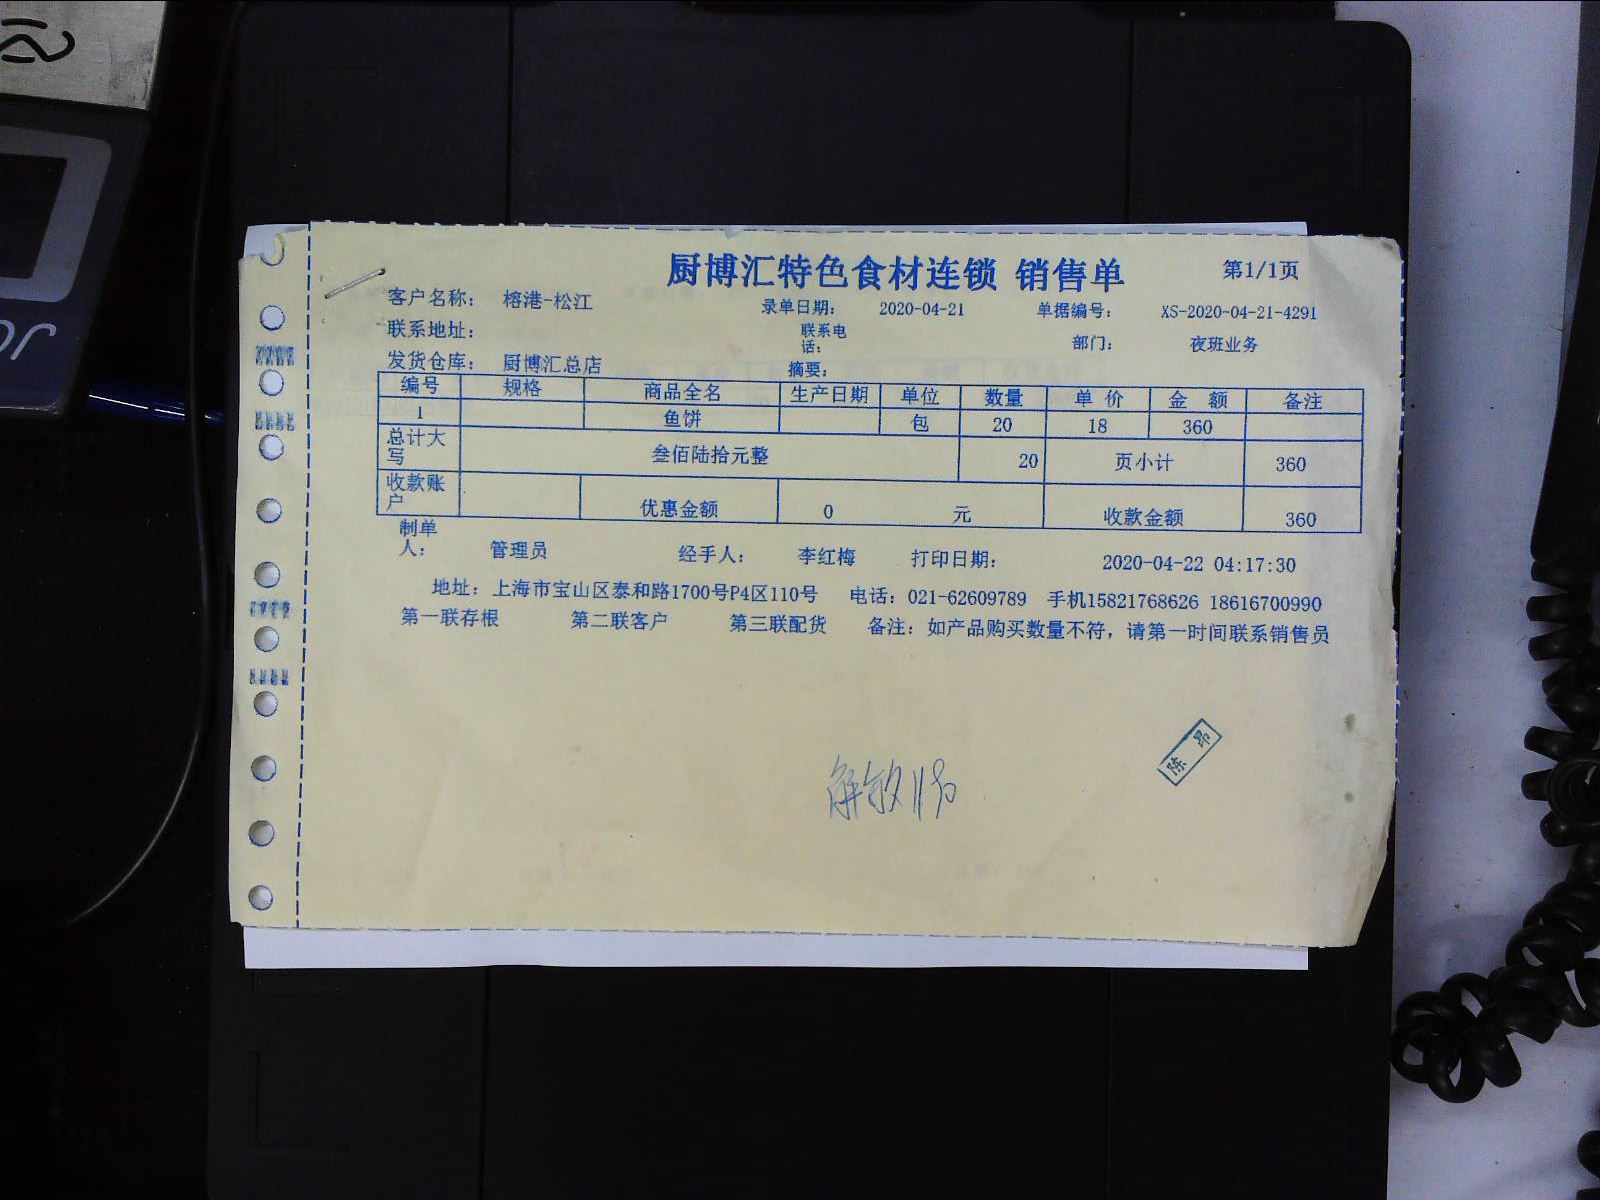 厨博汇特色食材连锁 销售单 第1/1页
客户名称： 榕港-松江 录单日期： 2020-04-21 单据编号： XS-2020-04-21-4291
联系地址： 联系电话： 部门： 夜班业务
发货仓库： 厨博汇总店 摘要：
编号 规格 商品全名 生产日期 单位 数量 单价 金额 备注
1 鱼饼 包 20 18 360
总计大写 叁佰陆拾元整 20 页小计 360
收款账户 优惠金额 0 元 收款金额 360
制单人： 管理员 经手人： 李红梅 打印日期： 2020-04-22 04:17:30
地址：上海市宝山区泰和路1700号P4区110号 电话：021-62609789 手机15821768626 18616700990
第一联存根 第二联客户 第三联配货 备注：如产品购买数量不符，请第一时间联系销售员
陈昂